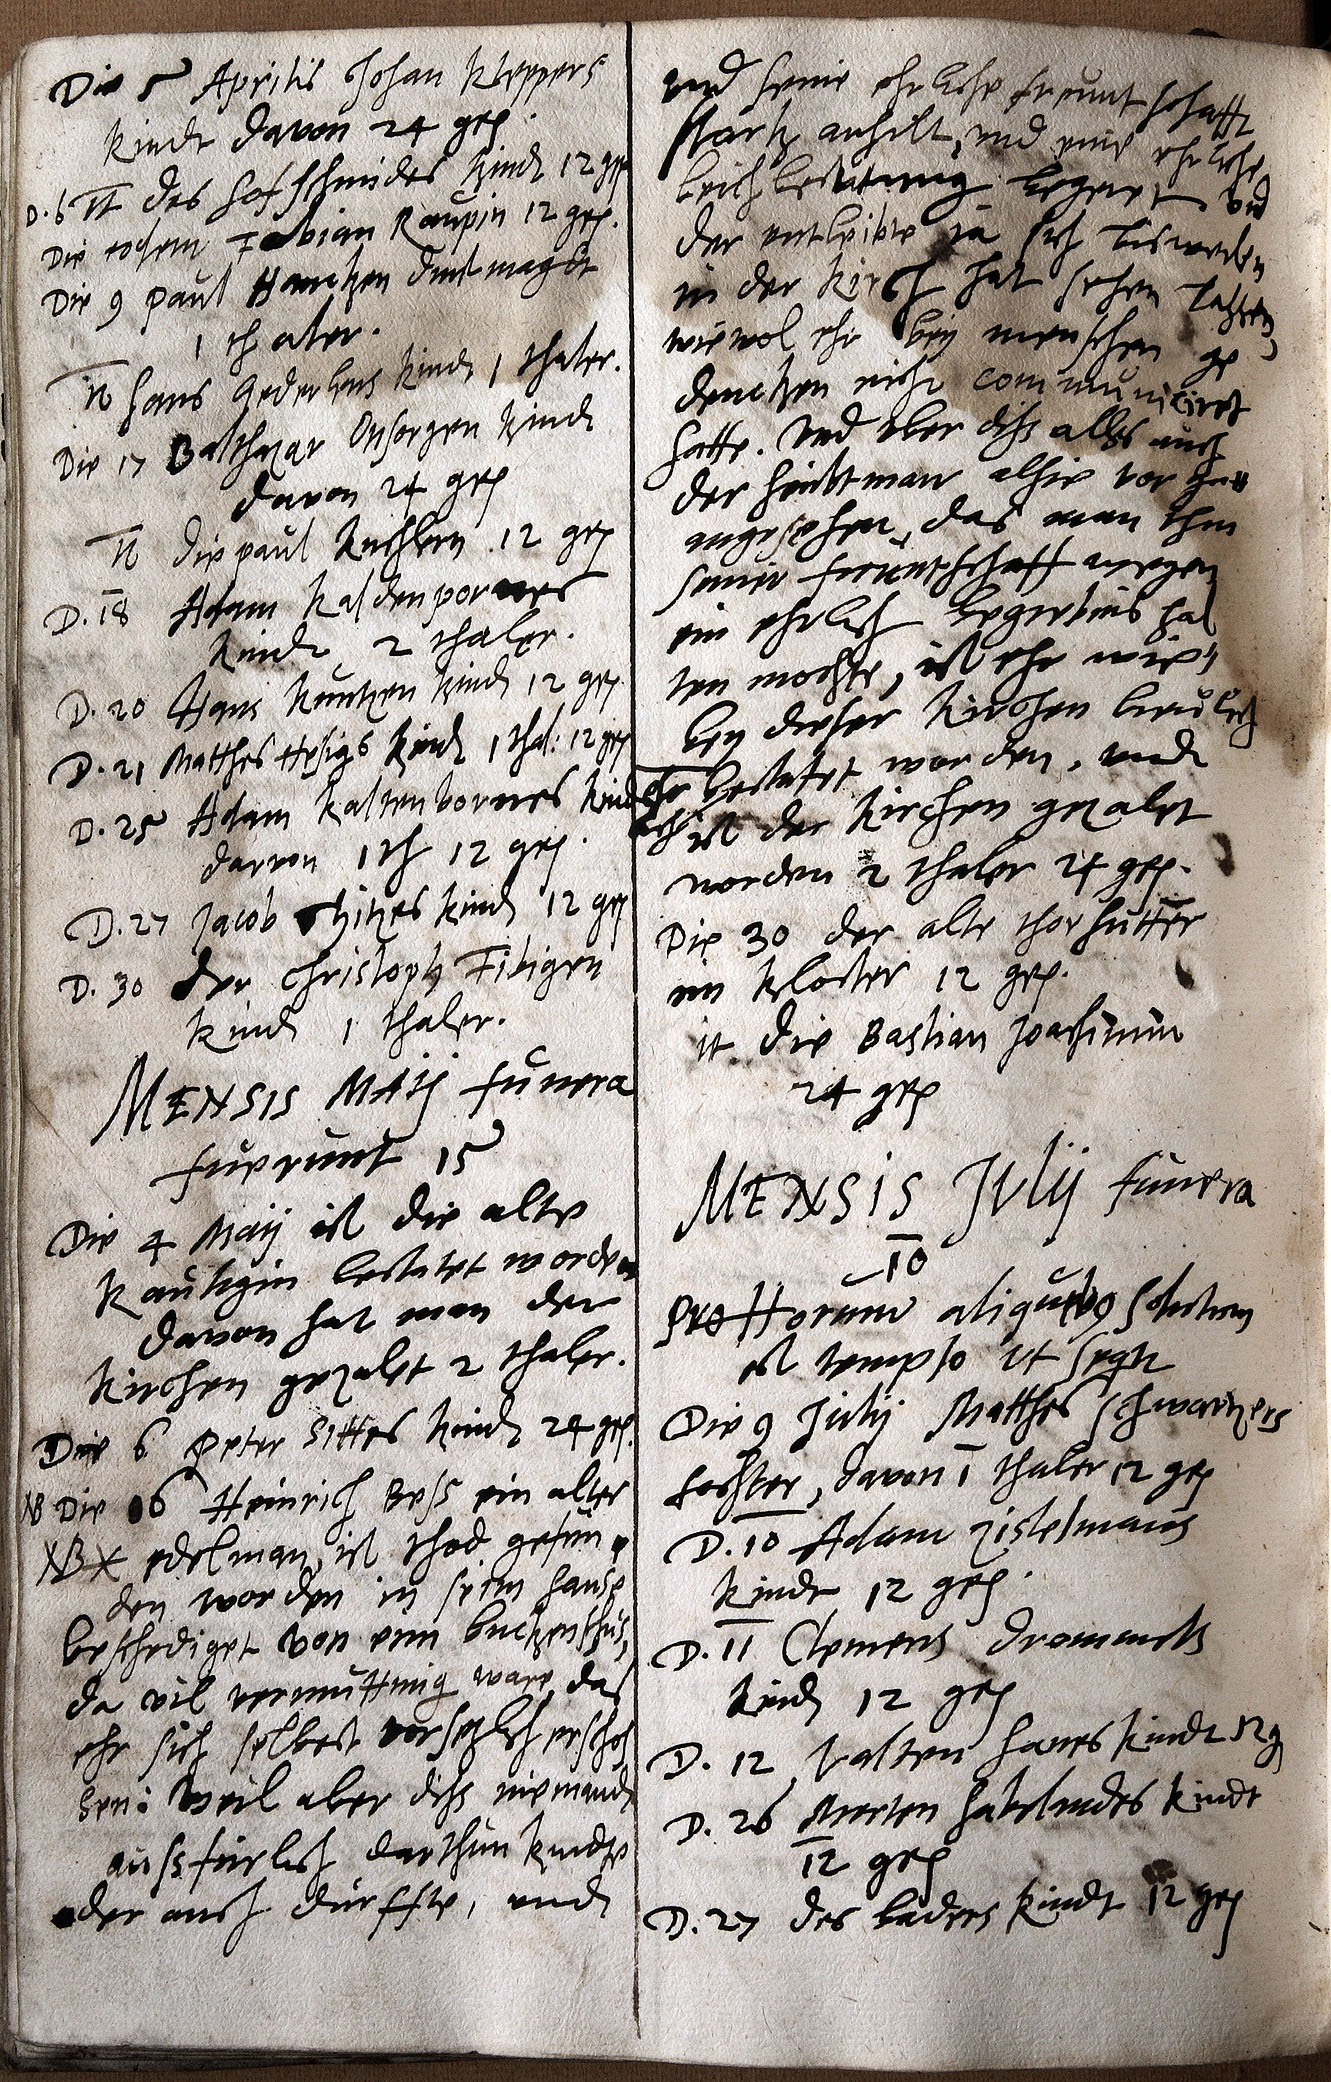 Die 5 Aprilis Johan Kleppers
kindt davon 24 gr.
D. 6 It des hoffschmides kindt 12 gr
Die eodem Fabian Raupin 12 gr.
Die 9 Paul Hanczen dinstmagdt
1 thaler.
It Hans Gederkens kindt 1 thaler.
Die 17 Balthazar Onsorgen kindt
davon 24 gr
It die Paul Kuchlern 12 gr
D. 18 Adam Kaldenpornes
kindt 2 thaler.
D. 20 Hans Kuntzen kindt 12 gr
D. 21 Matthes Hesigs kindt 1 thal: 12 gr
D. 25 Adam Kaltenbornes kindt
darvon 1 th 12 gr.
D. 27 Jacob kindt 12 gr
D. 30 der Christoph Fibigen
kindt 1 thaler.
MENSIS MAIJ funera
fuerunt 15
Die 4 Maij ist die alte
bestatet worden
davon hat man der
kirchen gezalet 2 thaler.
Die 6 Peter Sittes kindt 24 gr.
NB Die 16 Heinrich Bess ein alter
NB X edelman, ist thod gefun
den worden in seim hause
beschediget von eim buchzenschus,
da vil vermuttung ware, das
ehr sich selbest vorsetzlich erschos
sen: Weil aber diss niemandt
aussfurlich darthun kundte
oder auch durffte, undt
und seine ehrliche freuntschafft
starck anhilt, und eine ehrliche
leichbestattung begeret, und
der entleibte ja sich bisweilen
in der kirch hat sehen lassen,
wiewol ehr bey menschen ge
dencken nicht communiciret
hatte. Und aber diss alles auch
der heubtman alhie vor gutt
angesehen, das man ihm
seiner freuntschafft wegen
ein ehrlich begrebnis hal
ten mochte, ist ehr
bey dieser kirchen
bestatet worden, undt
ist der kirchen gezalet
worden 2 thaler 24 gr.
Die 30 der alte thorhutter
im kloster 12 gr.
it die Bastian Joachimin
24 gr
MENSIS JVLIJ funera
10
Pro Horum aliquibus solutum
est templo ut sequitur
Die 9 Julij Matthes Schwartzers
tochter, davon 1 thaler 12 gr
D. 10 Adam Zistelmans
kindt 12 gr.
D. 11 Clemens
kindt 12 gr
D. 12 Valten Hanes kindt 12 g
D. 26 Merten kindt
12 gr
D. 27 des baders kindt 12 gr